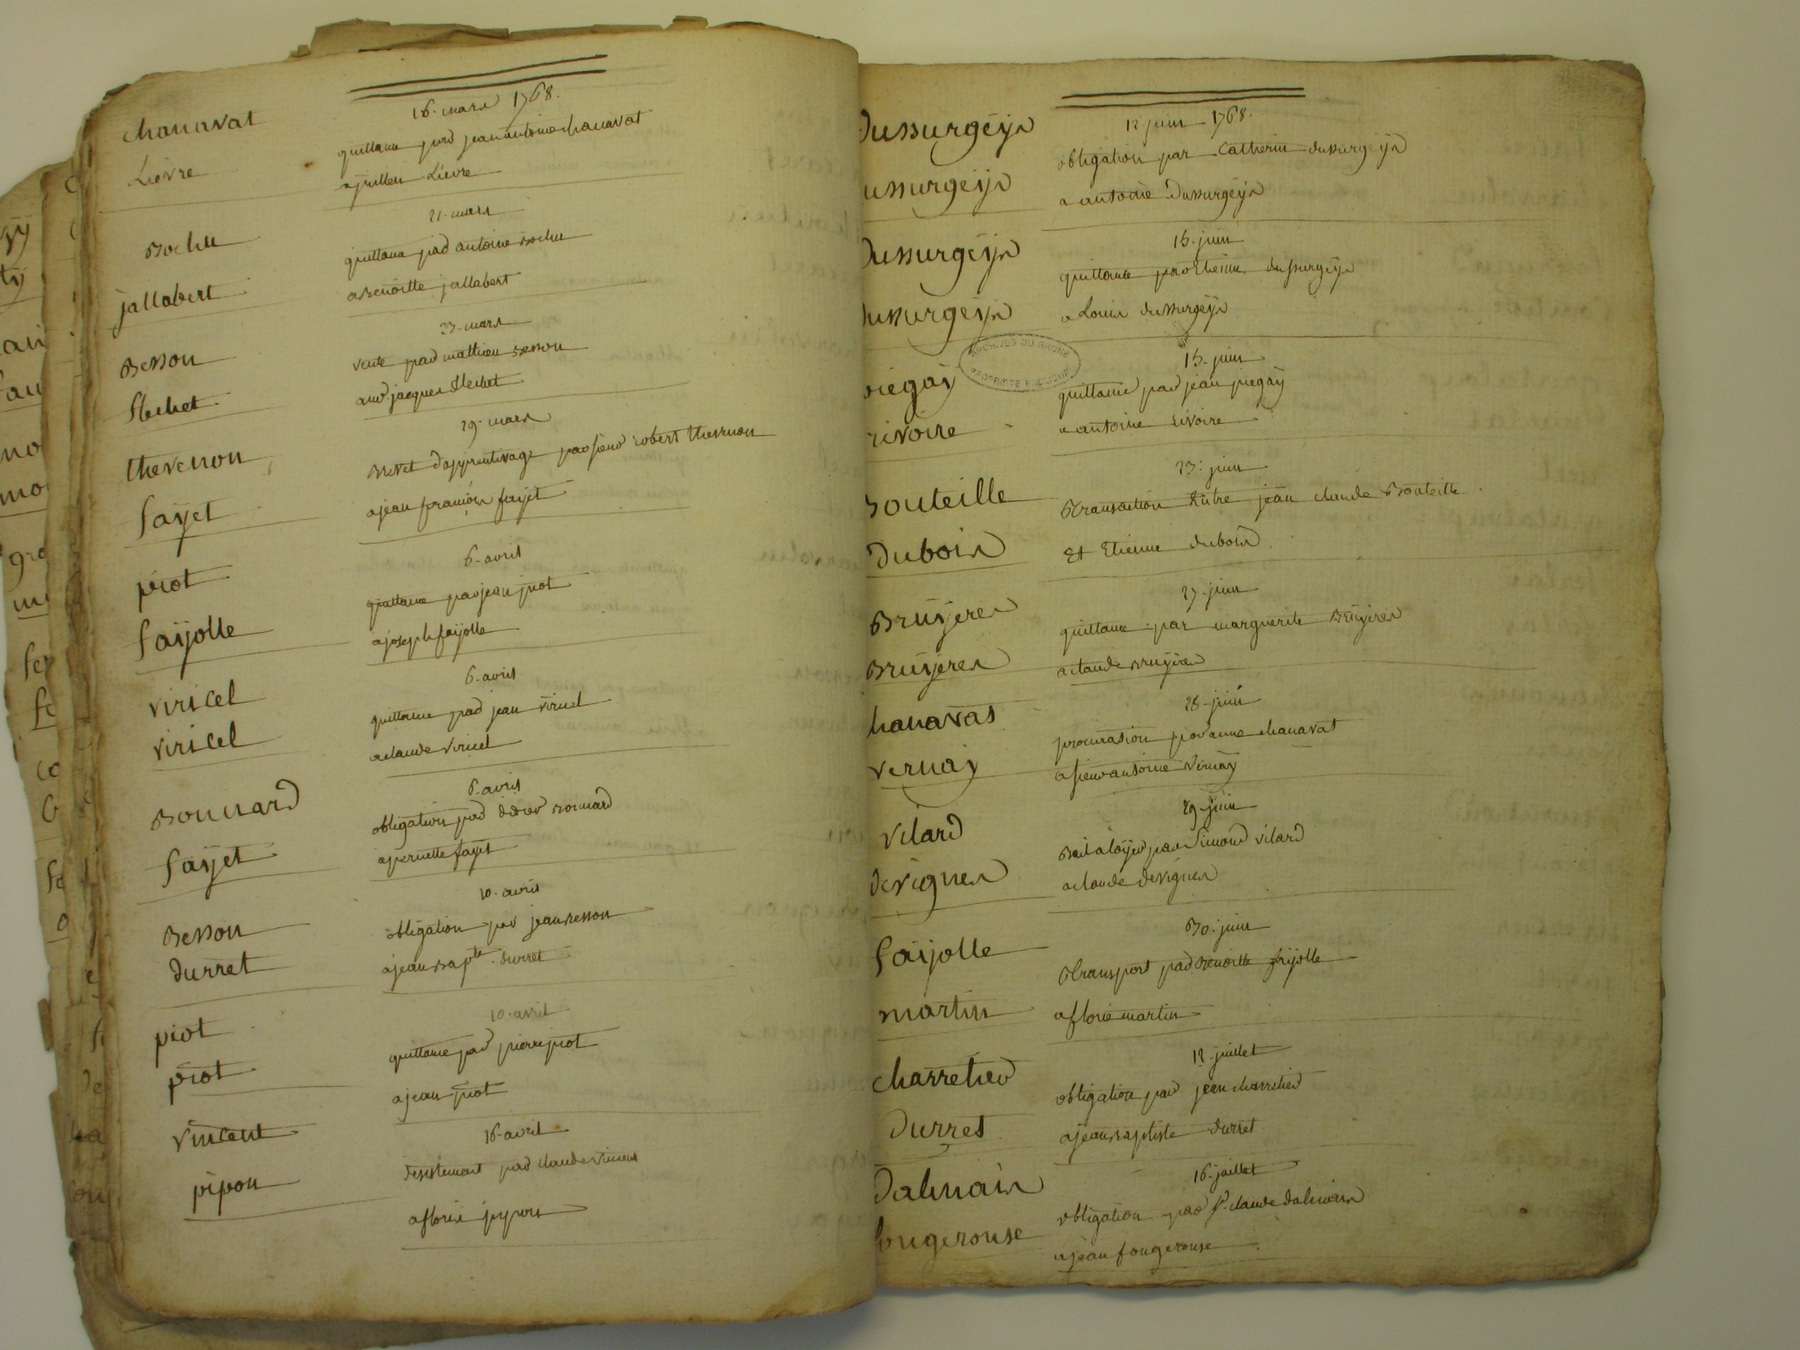 16. mars 1768.
chanavat
quittance par jean antoine chanavat
Lievre
a jullien Lievre
21. mars
Bochu
quittance par antoine Bochu
jallabert
a Benoitte jallabert
23. mars
Besson
vente par mathieu Besson
flechet
a jacques flechet
29. mars
thevenon
Brevet d'apprentissage par sieur robert thevenon
fayet
a jean francois fayet
6. avril
piot
quittance par jean piot
fayjolle
a joseph fayjolle
6. avril
viricel
quittance par jean viricel
viricel
a claude viricel
6. avril
Bonnard
obligation par Bonnard
fayet
a pernette fayet
10. avril
Besson
obligation par jean Besson
durret
a jean Bapte. durret
10. avril
piot
quittance par pierre piot
piot
a jean piot
16. avril
vincent
desistement par claude vincent
pipon
a floris pipon
12 juin 1768.
Dussurgeys
obligation par Catherin dussurgeys
ussurgeys
a antoine Dussurgeys
15. juin
Dussurgeys
quittance par Etienne dussurgeys
ussurgeys
a Louis dussurgeys
ARCHIVES DU RHONE
PROPRIETE PUBLIQUE
15. juin
piegay
quittance par jean piegay
rivoire
a antoine rivoire
23. juin
Bouteille
transaction Entre jean claude Bouteille
Dubois
Et Etienne dubois
27. juin
Bruyeres
quittance par marguerite Bruyeres
Bruyeres
a claude Bruyeres
28. juin
hanavat
procuration par anne chanavat
vernay
a sieur antoine vernay
29. juin
vilard
Bail a loyer par Simond vilard
devignes
a claude devignes
30. juin
fayjolle
transport par Benoitte fayjolle
martin
a floris martin
12. juillet
charretier
obligation par jean charretier
Durret
a jean Baptiste durret
16. juillet
Dalmais
obligation par sr. claude dalmais
fougerouse
a jean fougerouse